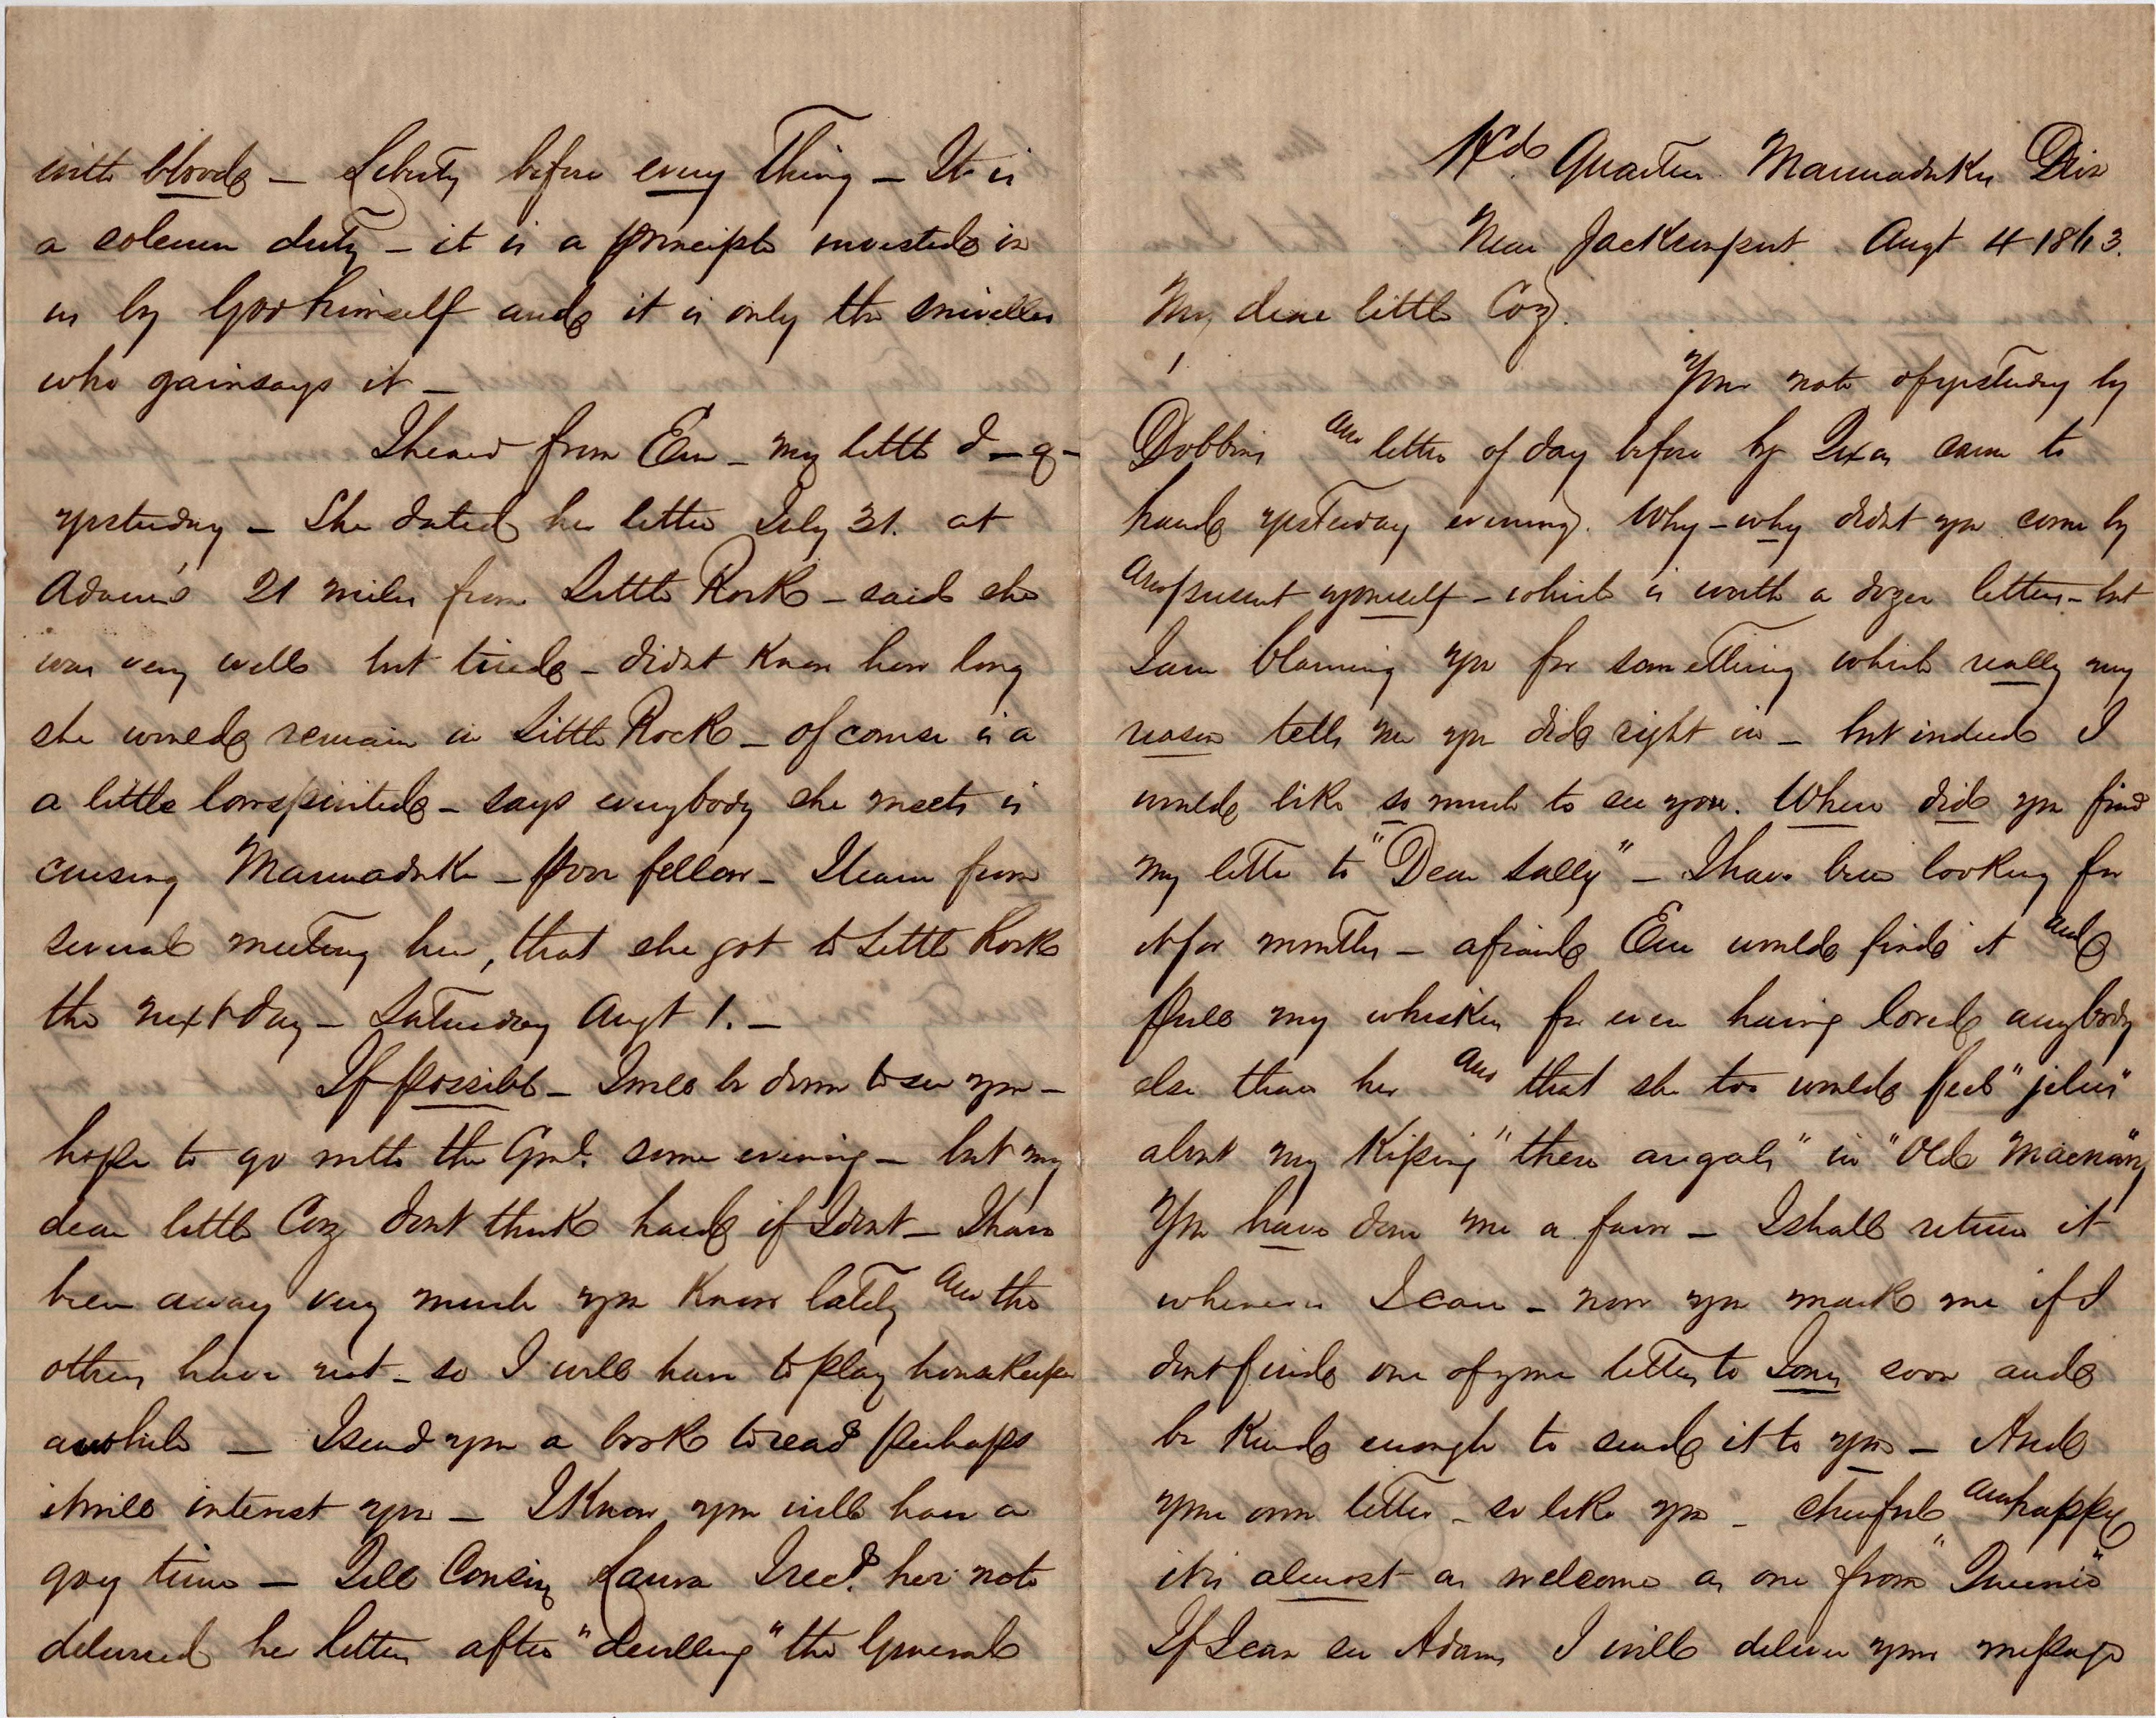 Hd. Quarters Marmadukes Div
Near Jacksonport Augt 4 1863.
My dear little Coz.
Your note of yesterday by
Dobbins and letter of day before by Texas came to
hand yesterday evening. Why - why didnt you come by
and present yourself - which is worth a dozen letters - but
I am blaming you for something which really my
reason tells me you did right in - but indeed I
would like so much to see you. Where did you find
my letter to "Dear Sally" - I have been looking for
it for months - afraid Em would find it and
pull my whiskers for ever having loved anybody
else than her and that she too would feel "jelus"
about my Kissing "them are gals" in "Old
You have done me a favor - I shall return it
whenever I can - now you mark me if I
dont find one of your letters to soon and
be Kind enough to send it to you - And
your own letter - so like you - cheerful and happy
it is almost as welcome as one from "Queenie"
If I can see Adams I will deliver your message
with blood - Liberty before every Thing - It is
a solemn duty - it is a principle invested in
us by God himself and it is only the sniveller
who gainsays it -
I heard from Em - my little d - q -
yesterday - She dated her letter July 31. at
Adams's 21 miles from Little Rock - said she
was very well but tired - didnt Know how long
she would remain in Little Rock - of course is a
a little lowspirited - says everybody she meets is
cursing Marmaduke - poor fellow - I learn from
several meeting her, that she got to Little Rock
the next day - Saturday Augt 1. -
If possible - I will be down to see you -
hope to go with the Genl. some evening - but my
dear little Coz dont think hard if I dont - I have
been away very much you Know lately and the
others have not - so I will have to play housekeeper
awhile - I send you a book to read perhaps
it will interest you - I Know you will have a
gay time - Tell Cousin Laura I recd. her note
delivered her letter after "devilling" the General